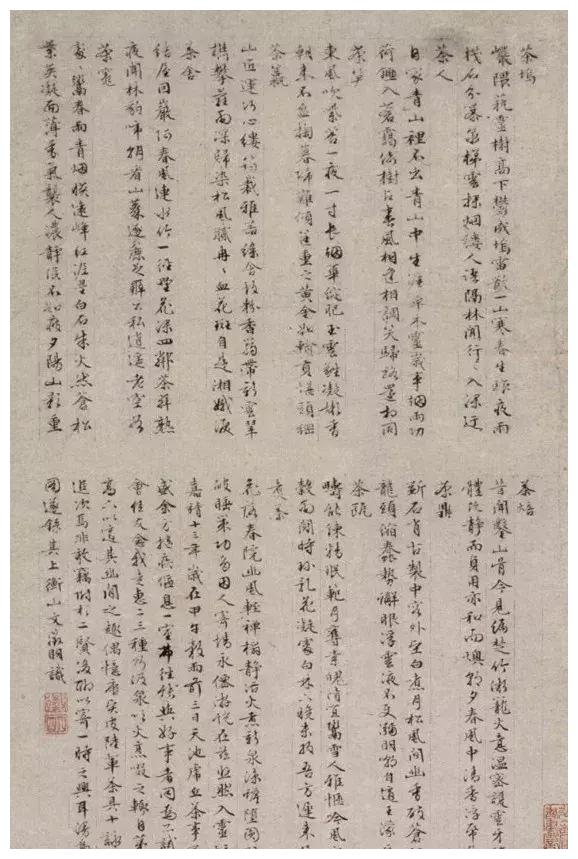 茶塢
巖隈藝靈樹高下鬱成塢雷散一山寒春生昨夜雨
棧石分瀑泉梯雲探烟縷人語隔林聞行行入深迂
茶人
自家青山裡不出青山中生涯草木靈歲事烟雨功
荷鋤入蒼靄倚樹占春風相逢相調笑歸路還相同
茶笋
東風吹紫苔一夜一寸長烟華綻肥玉雲蕤凝嫩香
朝來不盈掬暮歸難傾筐重之黃金如輸貢堪頭綱
茶籝
山匠運巧心縷筠裁雅器綠含故粉香篛帶新雲翠
攜攀蘿雨深歸染松風膩冉冉血花斑自是湘娥淚
茶舍
結屋因巖阿春風連水竹一徑野花深四鄰茶荈熟
夜聞林豹啼朝看山麋逐粗足辦公私逍遙老空谷
茶竈
處處鬻春雨青烟映遠峰紅泥壘白石朱火然蒼松
紫英凝面薄香氣襲人濃靜候不知疲夕陽山影重
茶焙
昔聞鑿山骨今見編楚竹微籠火意溫密護雲牙
體既靜而貞用亦和而燠朝夕春風中清香浮
茶鼎
斲石肖古製中容外堅白煮月松風間幽香破蒼
龍頭縮蠢勢蟹眼浮雲液不使彌明嘲自適王濛
茶甌
疇能煉精珉範月奪素魄清宜鬻雪人雅愜吟風
穀雨鬥時珍乳花凝處白林下晚未收吾方遲來
煮茶
花落春院幽風輕禪榻靜活火煮新泉涼蟾墮圓
破睡策功多因人寄情永僊游恍在茲悠然入靈
嘉靖十三年歲在甲午穀雨前三日天池虎丘茶事
盛余方抱疾偃息一室弗往能與好事者同為品試
會佳友念我走惠二三種乃汲泉以火烹啜之輒自第
高下以適其幽閒之趣偶憶唐賢皮陸輩茶具十詠
追次焉非敢竊附於二賢後聊以寄一時之興耳漫為
圖遂錄其上衡山文徵明識